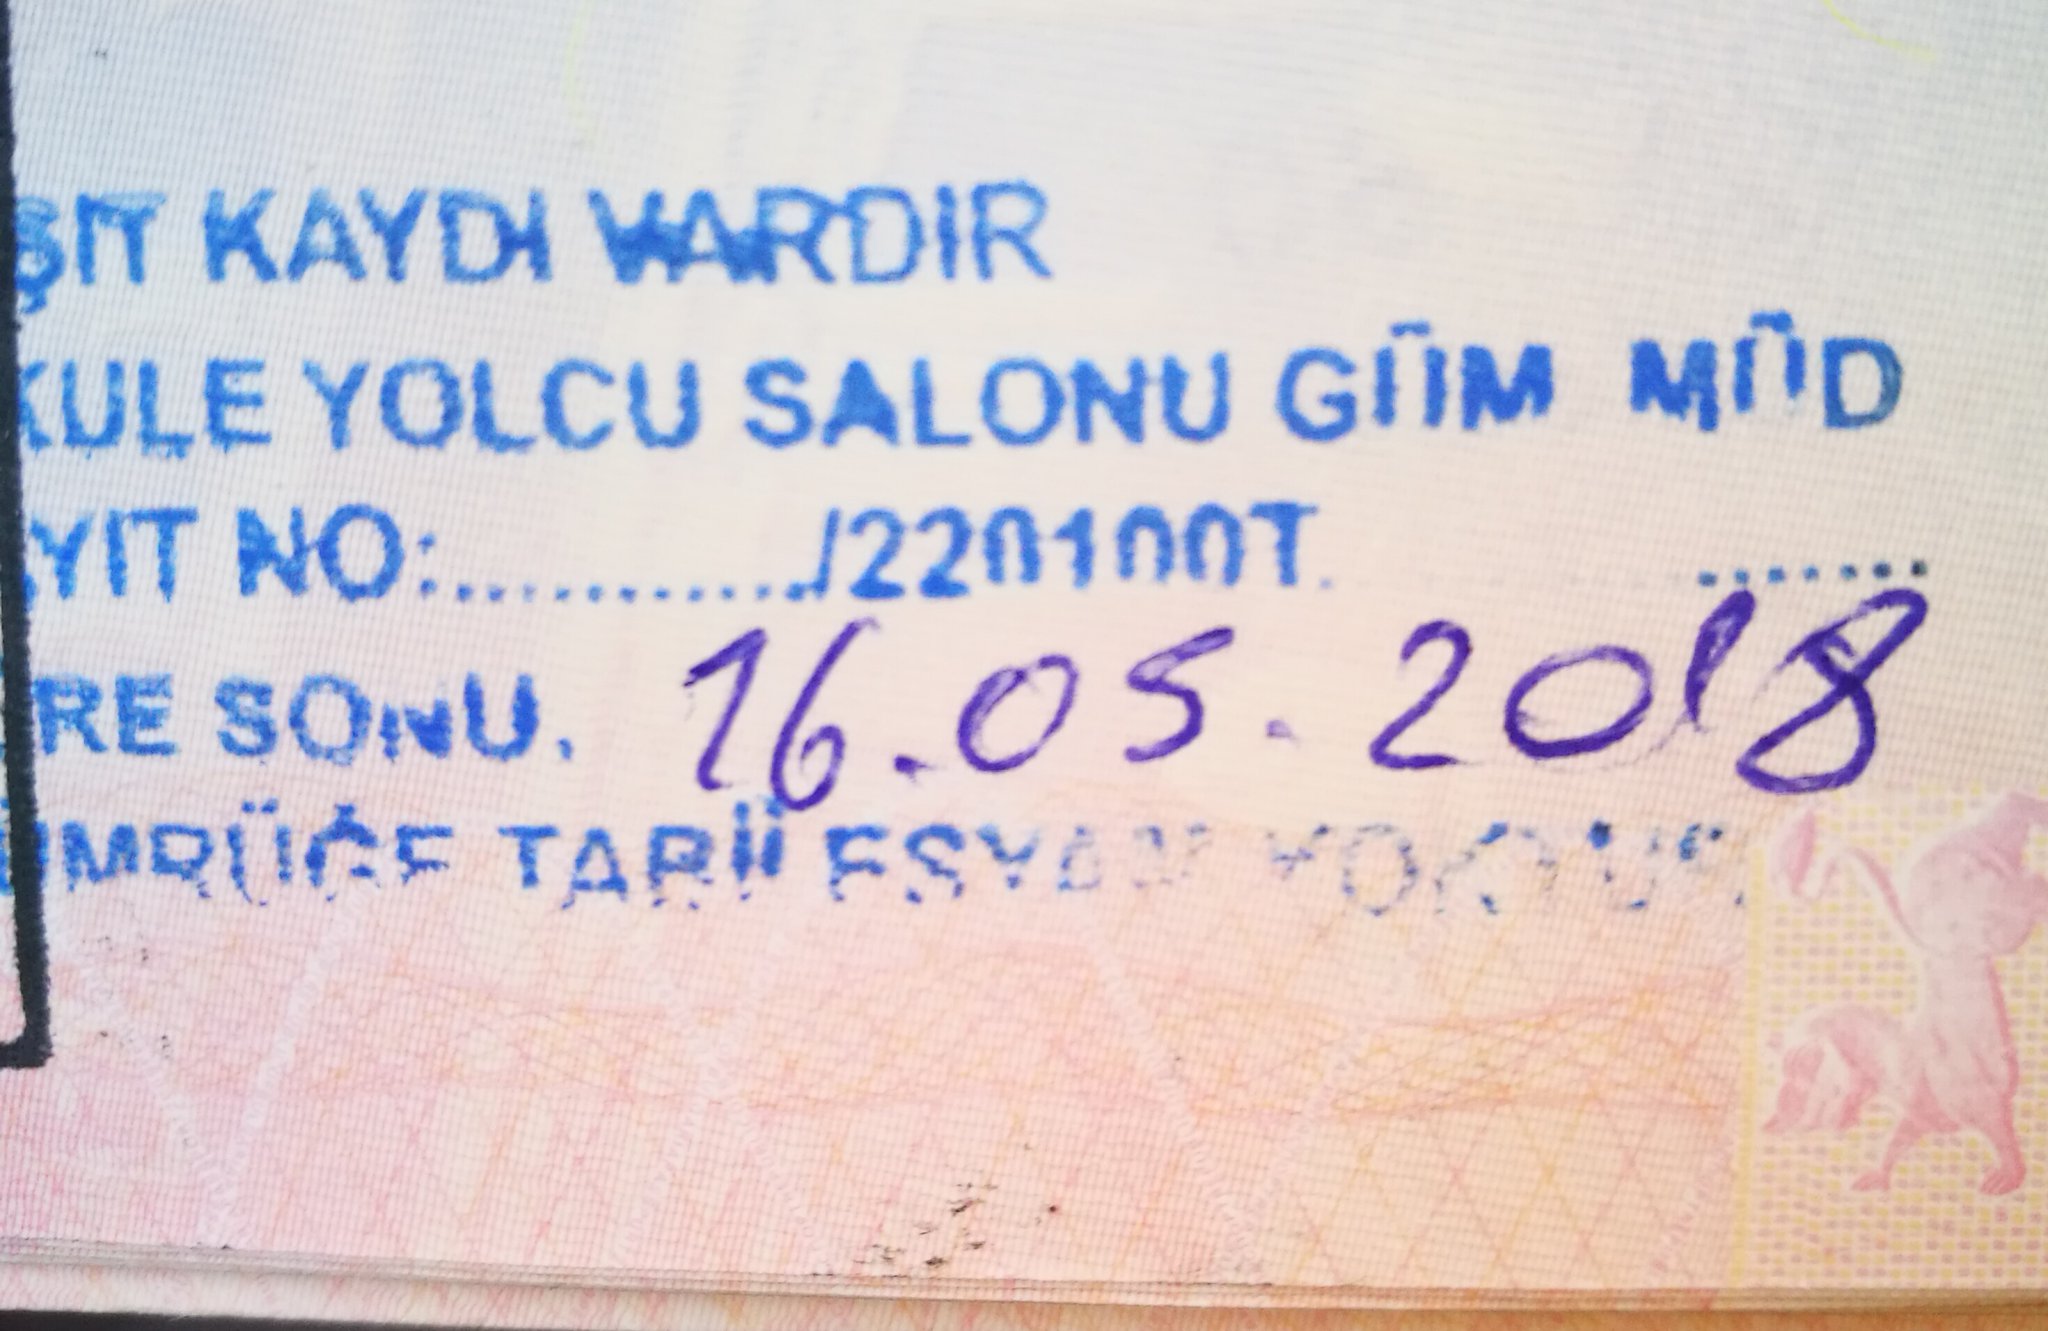 ŞIT KAYDI VARDIR
KULE YOLCU SALONU GÜM MÜD
YIT NO:............/220100T. .......
RE SONU. 16.05.2018
ÜMRÜĞE TABİİ EŞYASI YOKTUR.